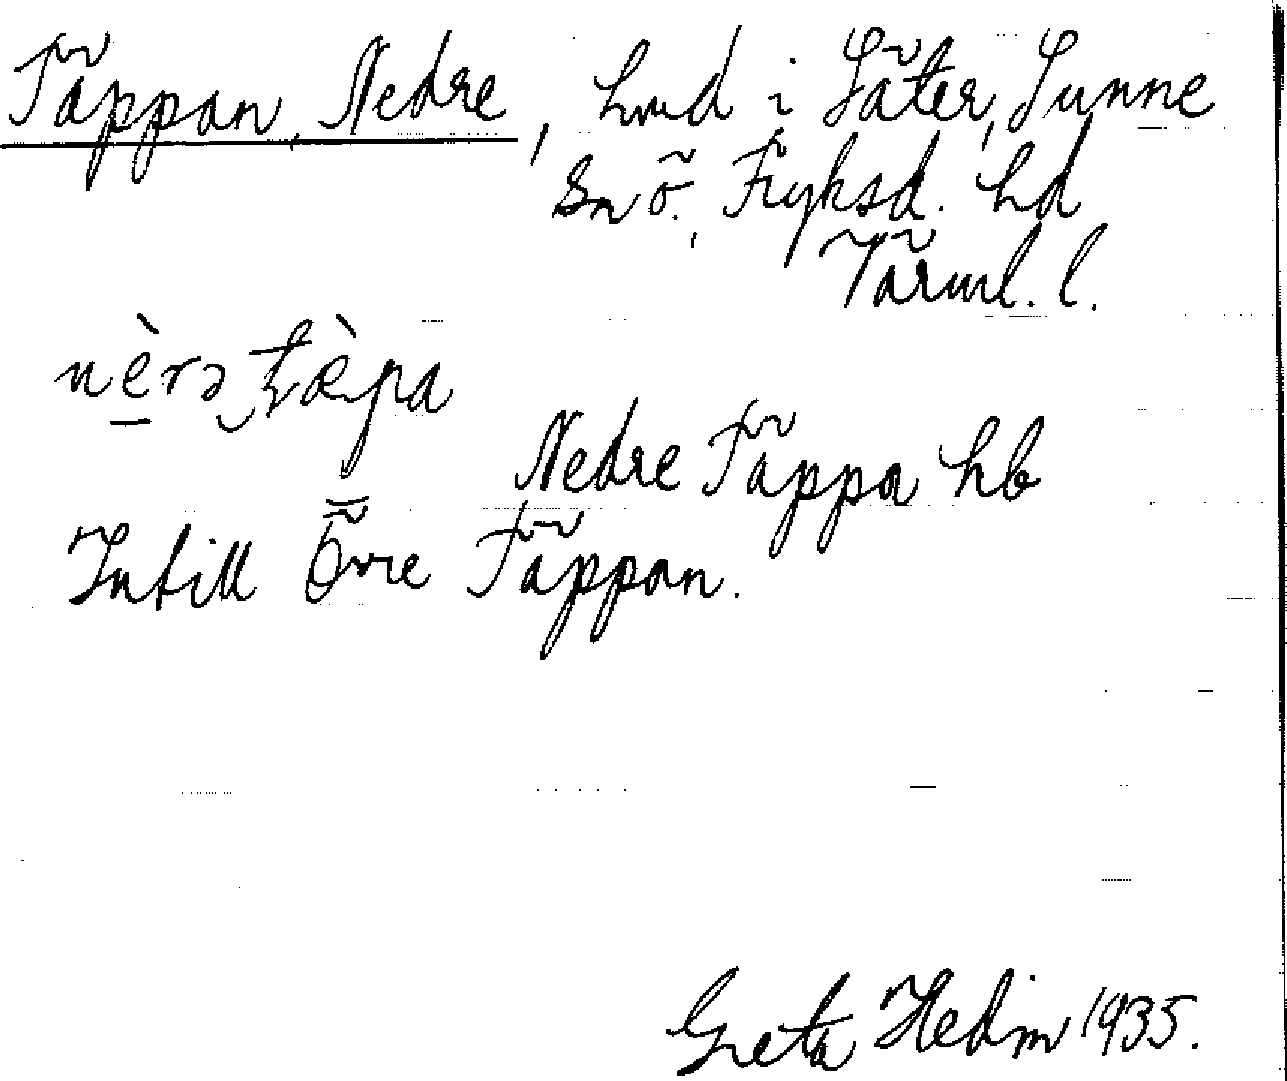 Täppan, Nedre, hmd i Säter, Sunne
sn ö., Fryksd. hd
Värml. l.
nè̠rə‿tæ̀pa
Nedre Täppa hb
Intill Övre Täppan.
Greta Hedin 1935.